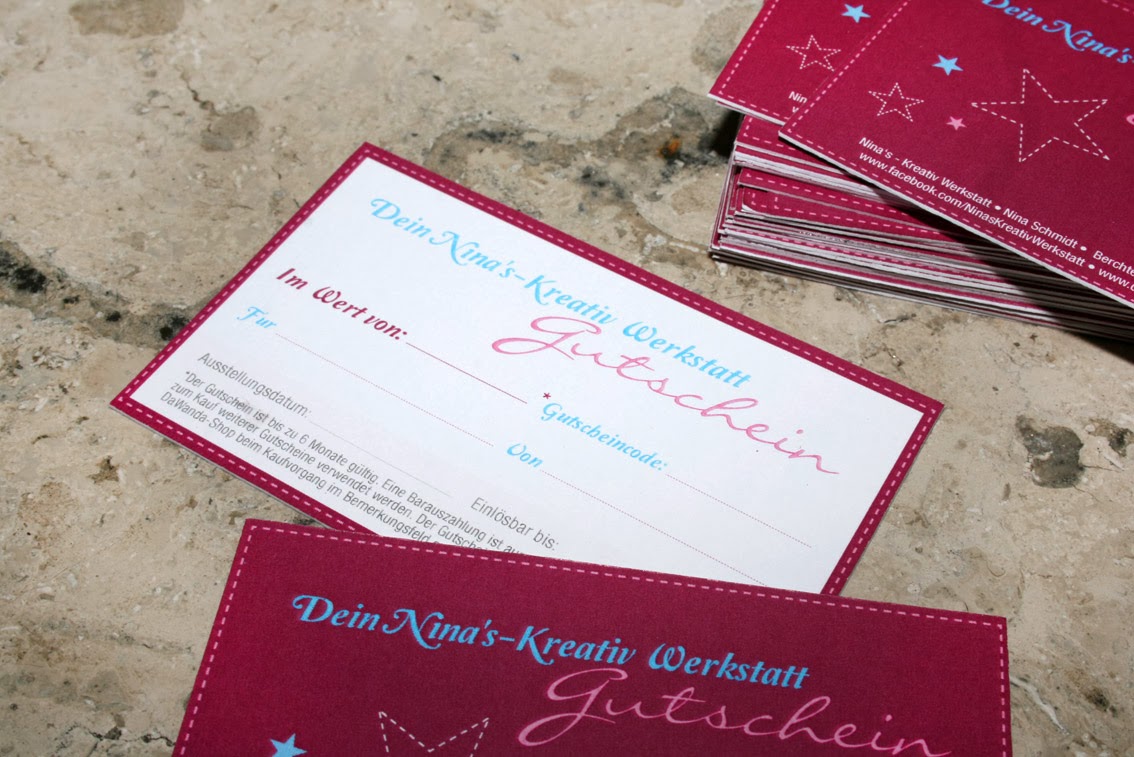 Dein Nina's-Kreativ Werkstatt
Gutschein
Im Wert von:
*Gutscheincode:
Für
Von
Ausstellungsdatum:
Einlösbar bis:
*Der Gutschein ist bis zu 6 Monate gültig. Eine Barauszahlung ist
zum Kauf weiterer Gutscheine verwendet werden. Der
DaWanda-Shop beim Kaufvorgang im Bemerkungsfeld
Dein Nina's-Kreativ Werkstatt
Gutschein
Dein Nina's-
Nina's - Kreativ Werkstatt • Nina Schmidt •
www.facebook.com/NinasKreativWerkstatt •